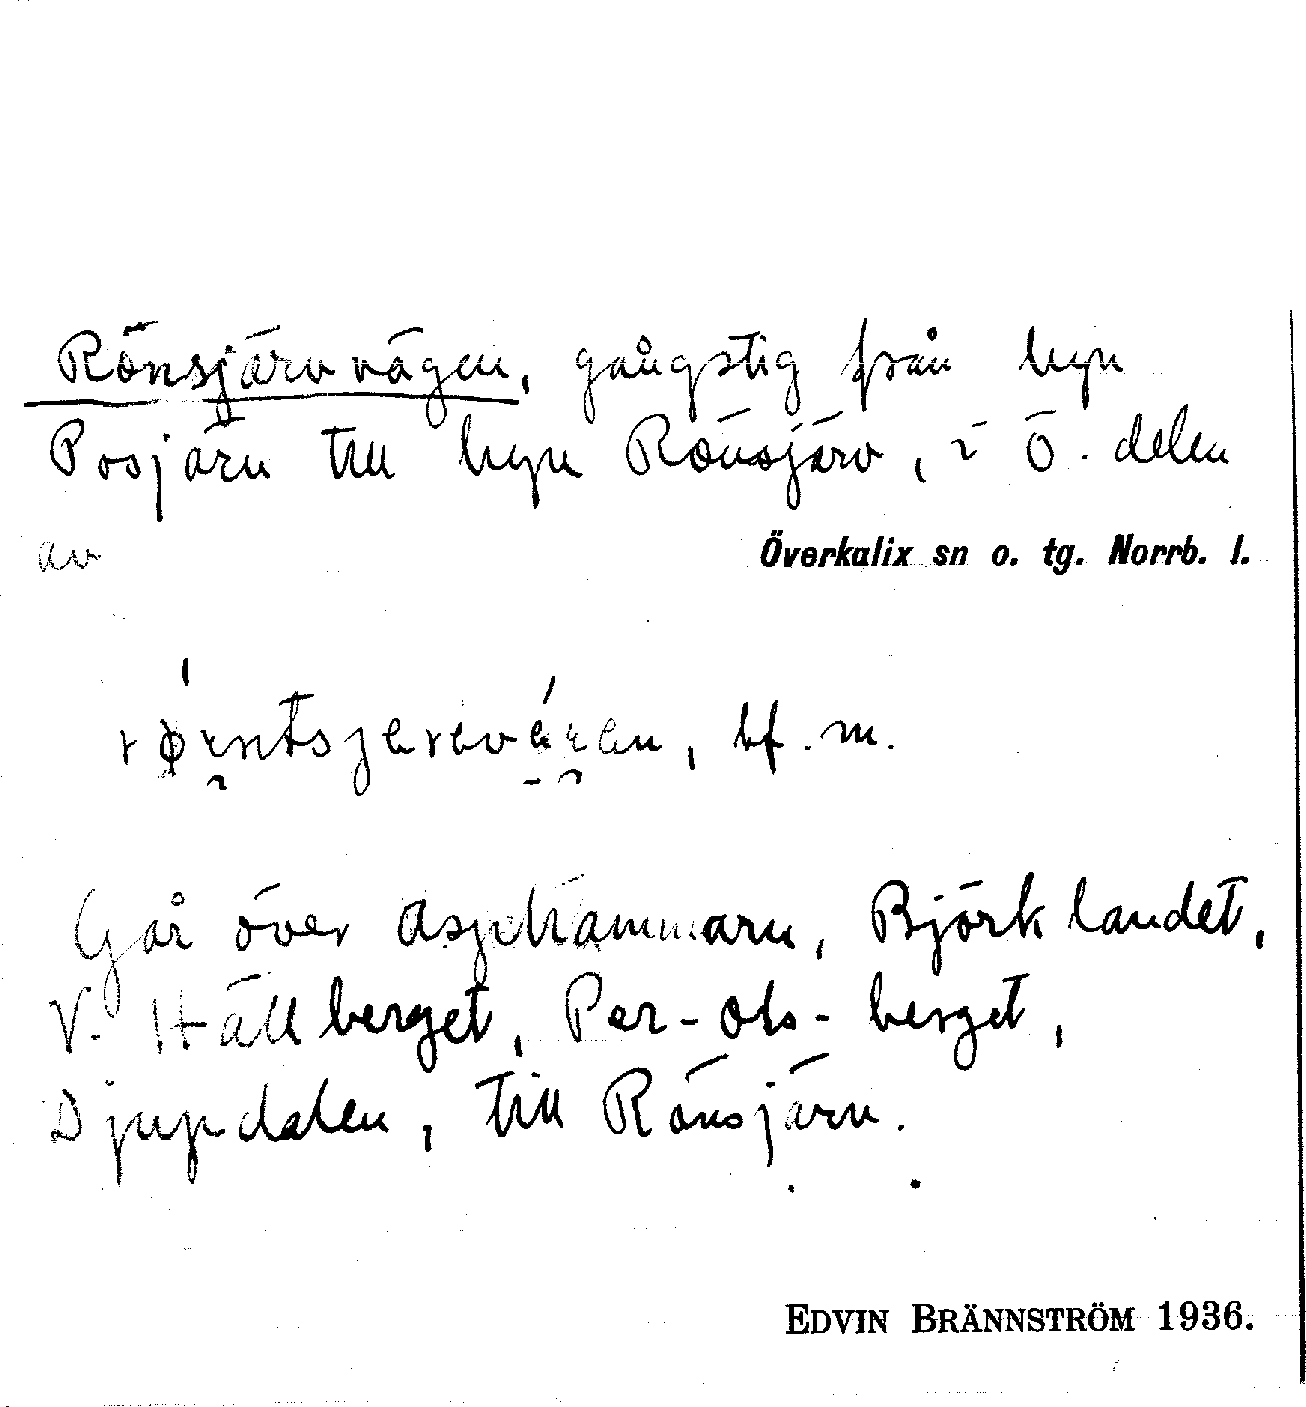 Rönsjärvvägen, gångstig från byn
Posjärv till byn Rönsjärv, i Ö. delen
av Överkalix sn o. tg. Norrb. l.
bf. m.
Går över Asphammarn, Björklandet,
V. Hällberget, Per-Ols-berget,
Djupdalen, till Rönsjärv.
EDVIN BRÄNNSTRÖM 1936.